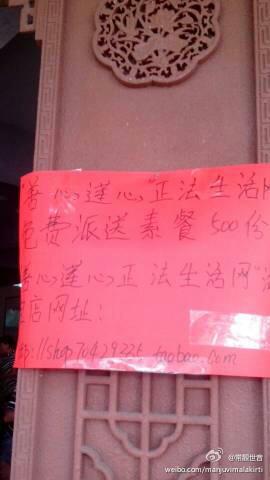 善心莲心正法生活网
免费派送素餐500份
善心莲心正法生活网淘
宝店网址:
http://shop70429225.taobao.com
@常靓世音
weibo.com/manjuvimalakirti